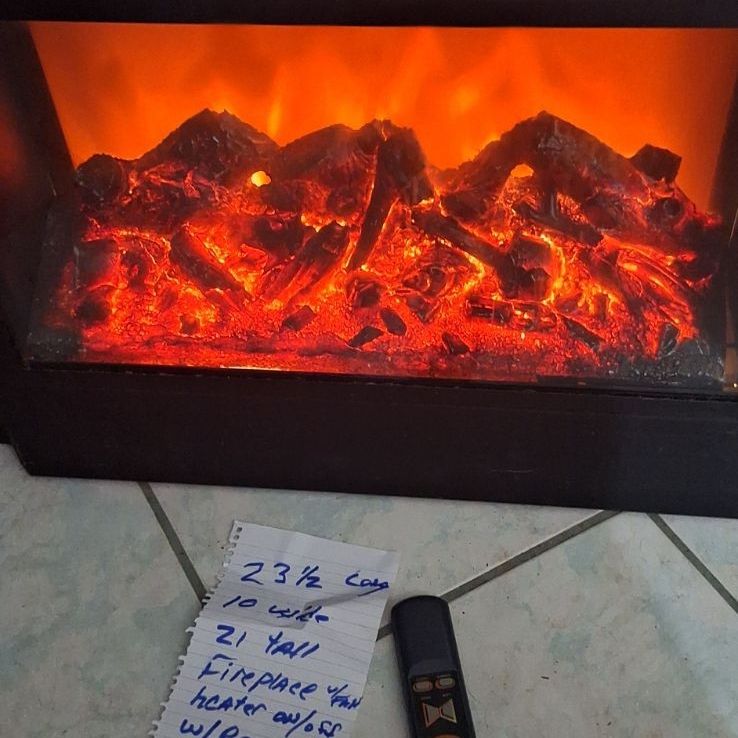 23 1/2 Long
10 wide
21 TAll
FIREPlACE w/FAN
heater on/off
w/